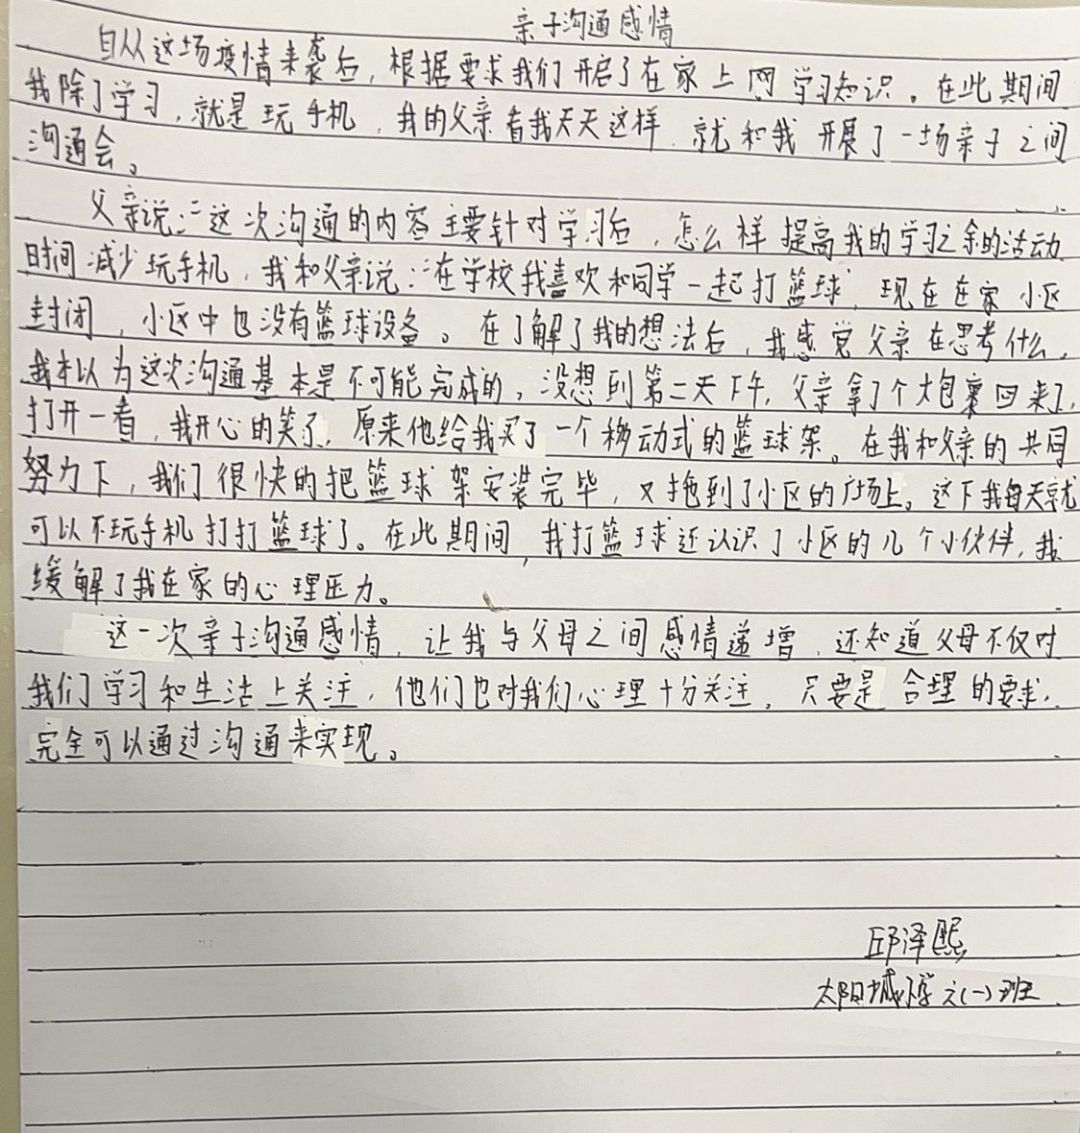 亲子沟通感情
自从这场疫情来袭后，根据要求我们开启了在家上网学习知识。在此期间
我除了学习，就是玩手机，我的父亲看我天天这样，就和我开展了一场亲子之间
沟通会。
父亲说：“这次沟通的内容主要针对学习后，怎么样提高我的学习之余的活动
时间减少玩手机，我和父亲说：“在学校我喜欢和同学一起打篮球，现在在家小区
封闭，小区中也没有篮球设备。在了解了我的想法后，我感觉父亲在思考什么，
我本以为这次沟通基本是不可能完成的，没想到第二天下午，父亲拿了个大包裹回来了，
打开一看，我开心的笑了，原来他给我买了一个移动式的篮球架。在我和父亲的共同
努力下，我们很快的把篮球架安装完毕，又拖到了小区的广场上。这下我每天就
可以不玩手机打打篮球了。在此期间，我打篮球还认识了小区的几个小伙伴，我
缓解了我在家的心理压力。
这一次亲子沟通感情，让我与父母之间感情递增，还知道父母不仅对
我们学习和生活上关注，他们也对我们心理十分关注。只要是合理的要求，
完全可以通过沟通来实现。
邱泽熙
太阳城小学六(一)班